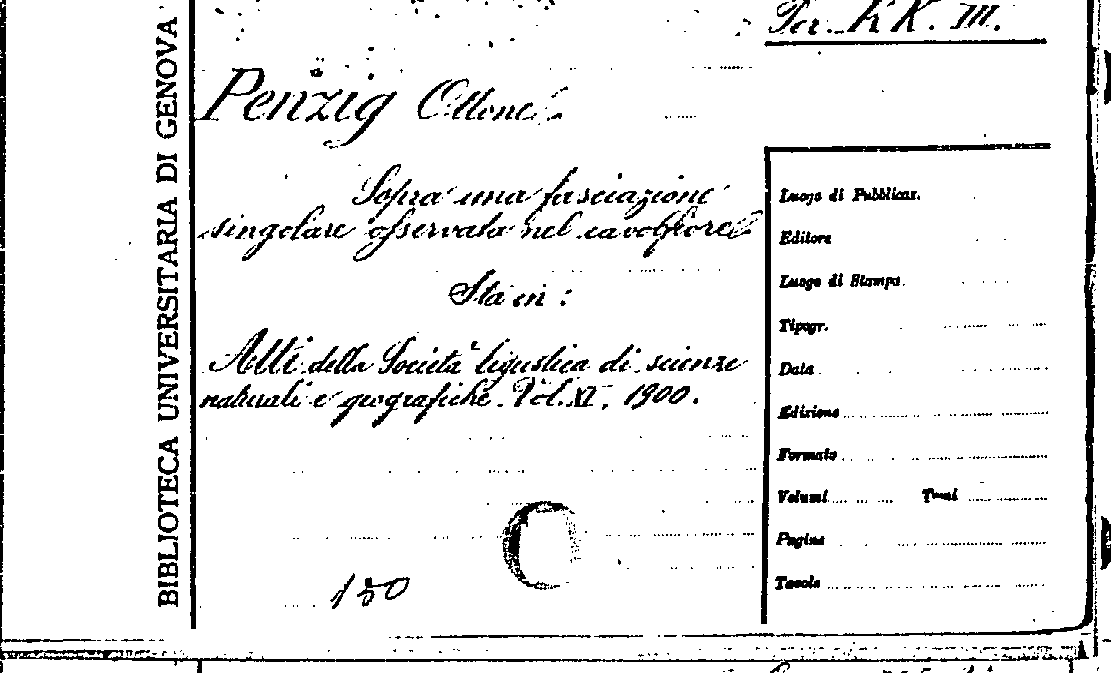 BIBLIOTECA UNIVERSITARIA DI GENOVA
Per. KK. III.
Penzig Ottone
Sopra una fasciazione
singolare osservata nel cavolfiore
Sta in :
Atti della Società ligustica di scienze
naturali e geografiche. Vol. XI, 1900.
150
Luogo di Pubblicaz.
Editore
Luogo di Stampa.
Tipogr.
Data
Edizione
Formato
Volumi Tomi
Pagine
Tavole